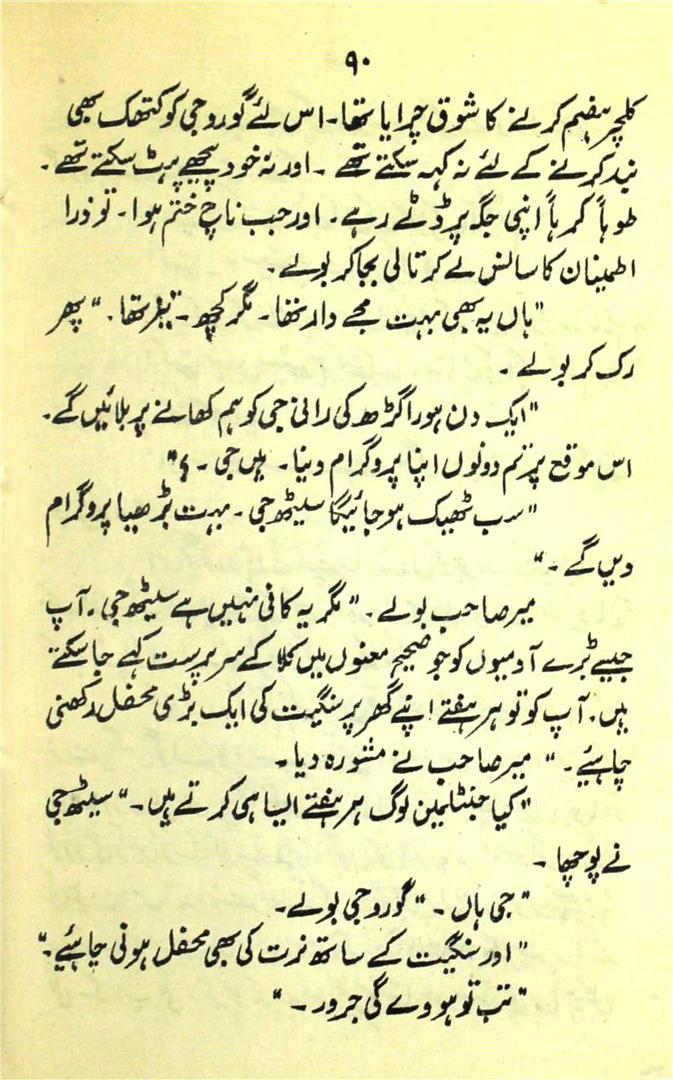 ۹۰
کلچر ہضم کرنے کا شوق چرایا تھا۔ اس لئے گوروجی کو کتھک بھی
بند کرنے کے لئے نہ کہہ سکتے تھے ۔ اور نہ خود پیچھے ہٹ سکتے تھے ۔
طوہاً کرہاً اپنی جگہ پر ڈٹے رہے ۔ اور جب ناچ ختم ہوا ۔ تو ذرا
اطمینان کا سانس لے کر تالی بجا کر بولے ۔
"ہاں یہ بھی بہت مجے دار تھا ۔ مگر کچھ ۔ تیغر تھا ۔" پھر
رک کر بولے ۔
"ایک دن ہورا گڑھ کی رانی جی کو ہم کھانے پر بلائیں گے ۔
اس موقع پر تم دونوں اپنا پروگرام دینا ۔ ہیں جی ۔ ؟"
"سب ٹھیک ہو جائیگا سیٹھ جی ۔ بہت بڑھیا پروگرام
دیں گے ۔"
میر صاحب بولے ۔ "مگر یہ کافی نہیں ہے سیٹھ جی ۔ آپ
جیسے بڑے آدمیوں کو جو صحیح معنوں میں کلا کے سرپرست کہے جا سکتے
ہیں ۔ آپ کو تو ہر ہفتے اپنے گھر پر سنگیت کی ایک بڑی محفل رکھنی
چاہیئے ۔" میر صاحب نے مشورہ دیا ۔
"کیا جنٹلمین لوگ ہر ہفتے ایسا ہی کرتے ہیں ۔" سیٹھ جی
نے پوچھا ۔
"جی ہاں ۔" گوروجی بولے ۔
"اور سنگیت کے ساتھ نرت کی بھی محفل ہونی چاہئیے ۔"
"تب تو ہووے گی جرور ۔"